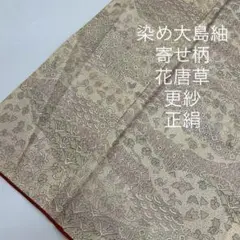 染め大島紬
寄せ柄
花唐草
更紗
正絹